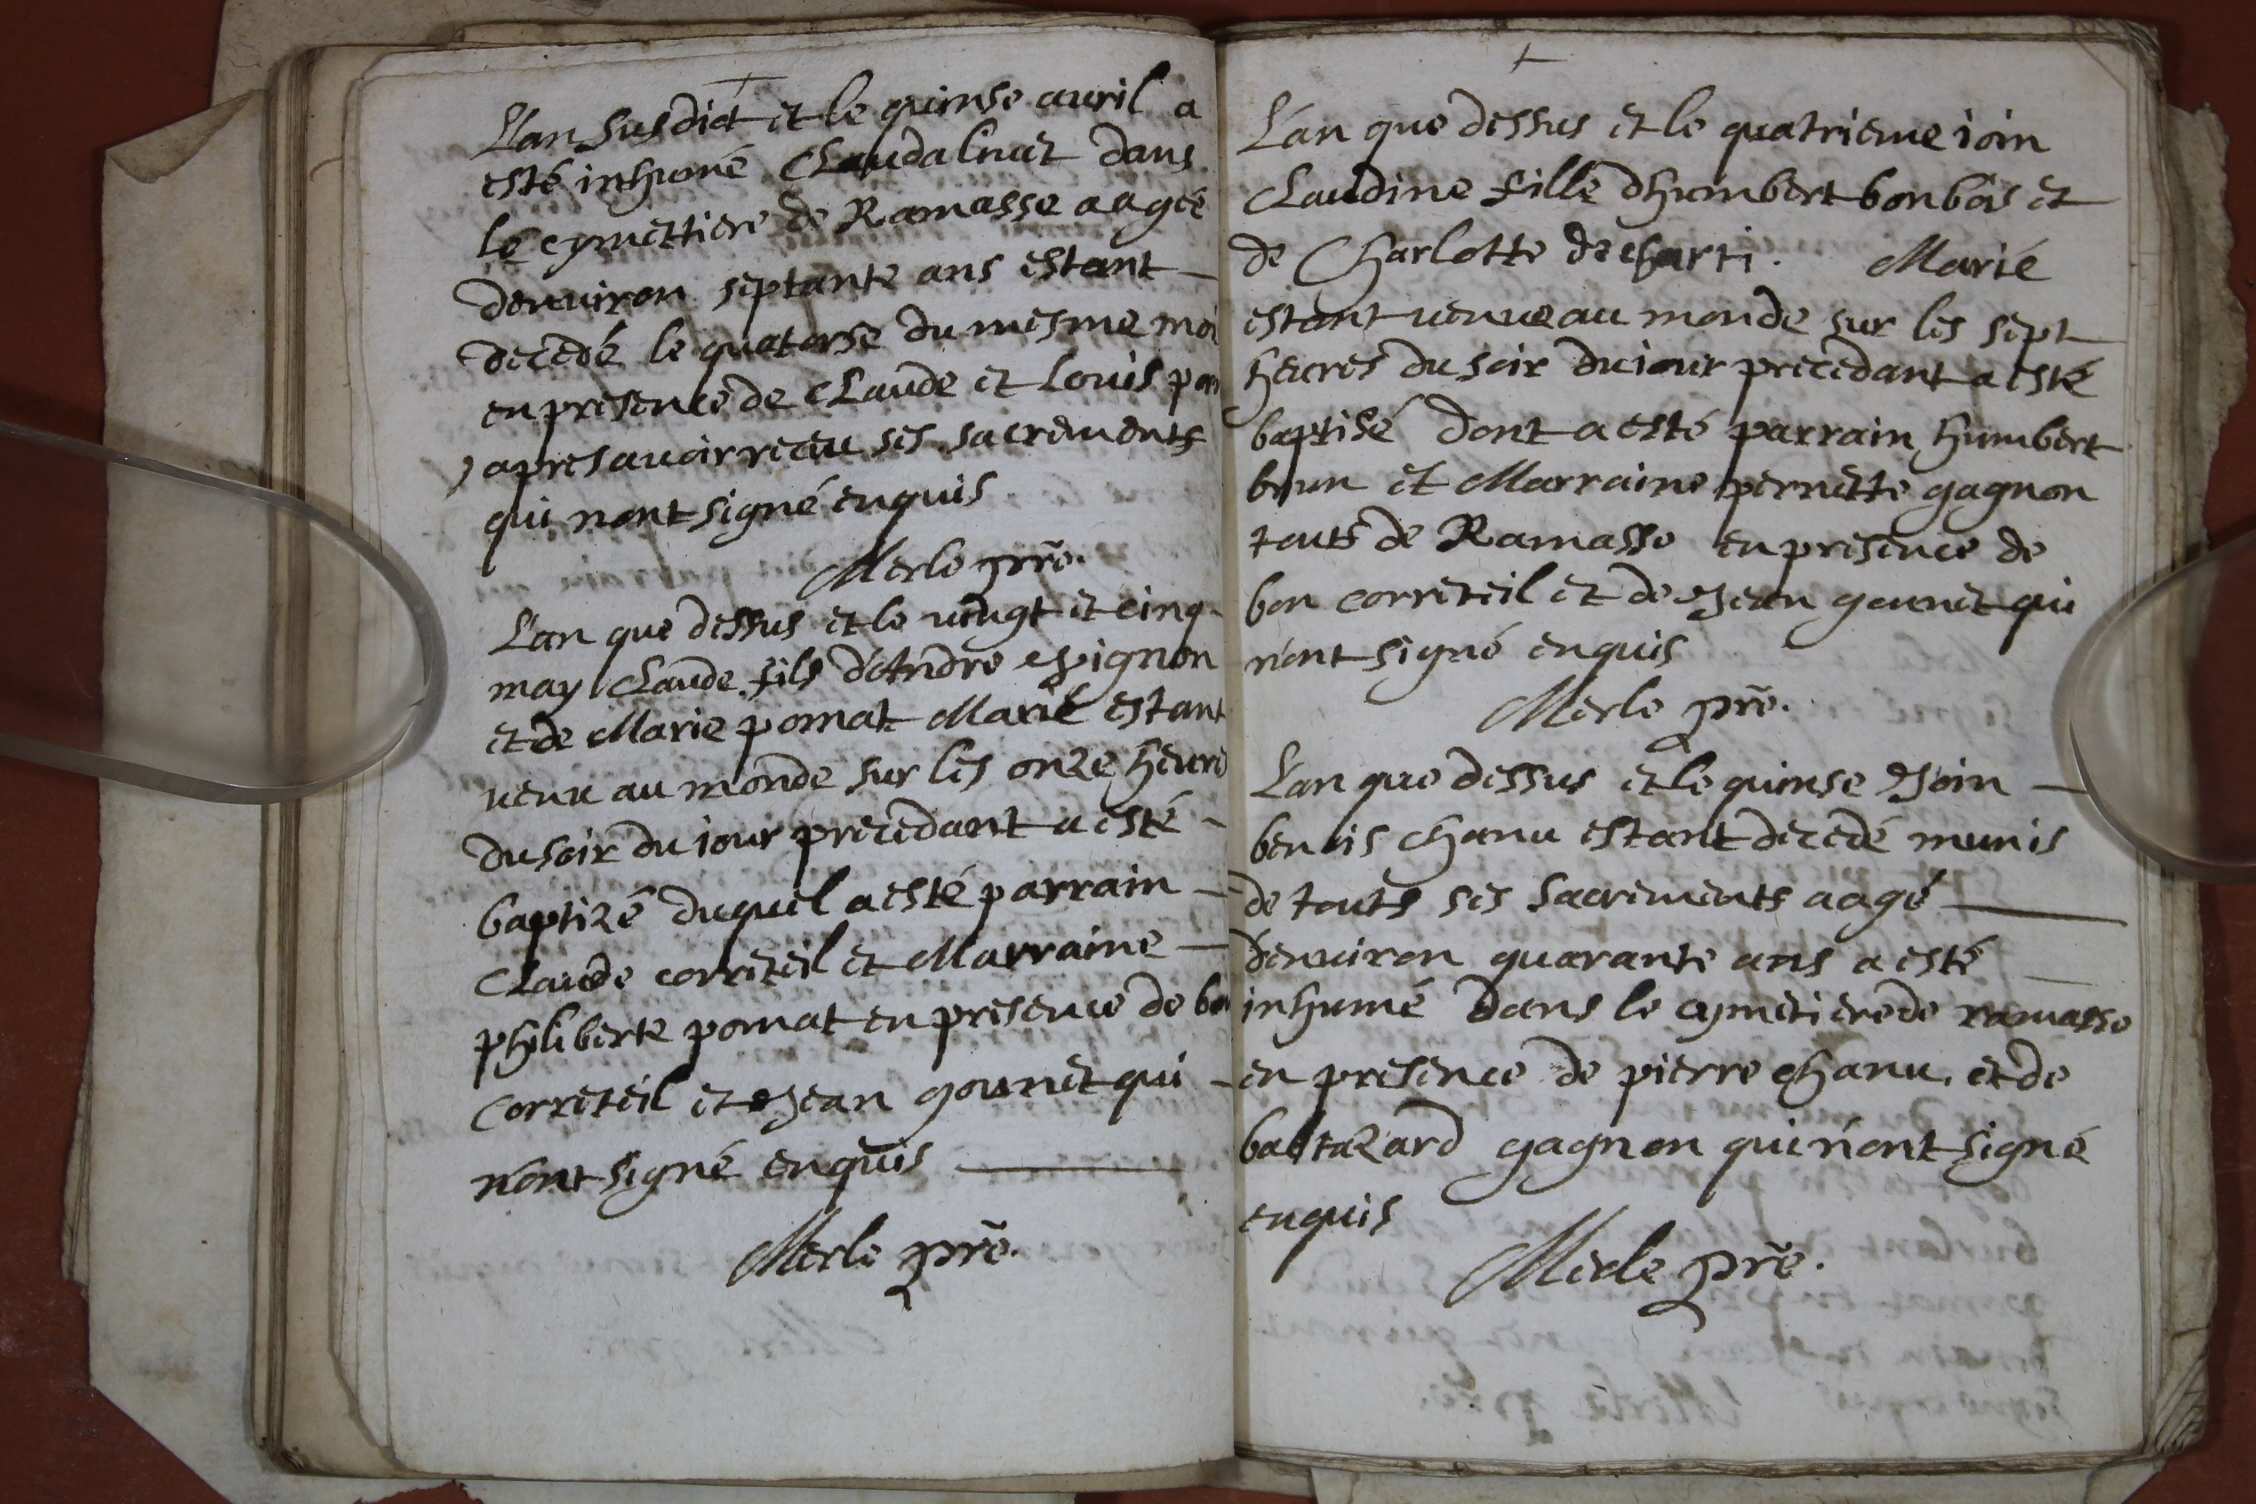 L'an susdict et le quinse auril a
esté inhumé Clauda Cruit dans
le cymettiere de Ramasse aagée
denuiron septante ans estant
decedé le quatorse du mesme moi
en presence de Claude et Louis
apres auoir receu ses sacrements
qui n'ont signé enquis
Merle pre.
L'an que dessus et le uingt et cinq
may Claude fils d'Andre Pignon
et de Marie pomat Marié estant
uenu au monde sur les onze heure
du soir du iour precedant a esté
baptizé duquel a esté parrain
Claude correteil et Marraine
philiberte pomat en presence de bon
Correteil et Jean gounet qui
n'ont signé enquis
Merle pre.
L'an que dessus et le quatrieme ioin
Claudine fille d'humbert bonbois et
de Charlotte decharti. Marié
estant uenue au monde sur les sept
heures du soir du iour precedant a esté
baptisé dont a esté parrain humbert
brun et Marraine pernette gagnon
touts de Ramasse en presence de
bon correteil et de Jean gounet qui
n'ont signé enquis
Merle pre.
L'an que dessus et le quinse Join
benois chanu estant decedé munis
de touts ses sacrements aagé
denuiron quarante ans a esté
inhumé dans le cymetiere de ramasse
en presence de pierre chanu. et de
baltazard gagnon qui n'ont signé
enquis
Merle pre.